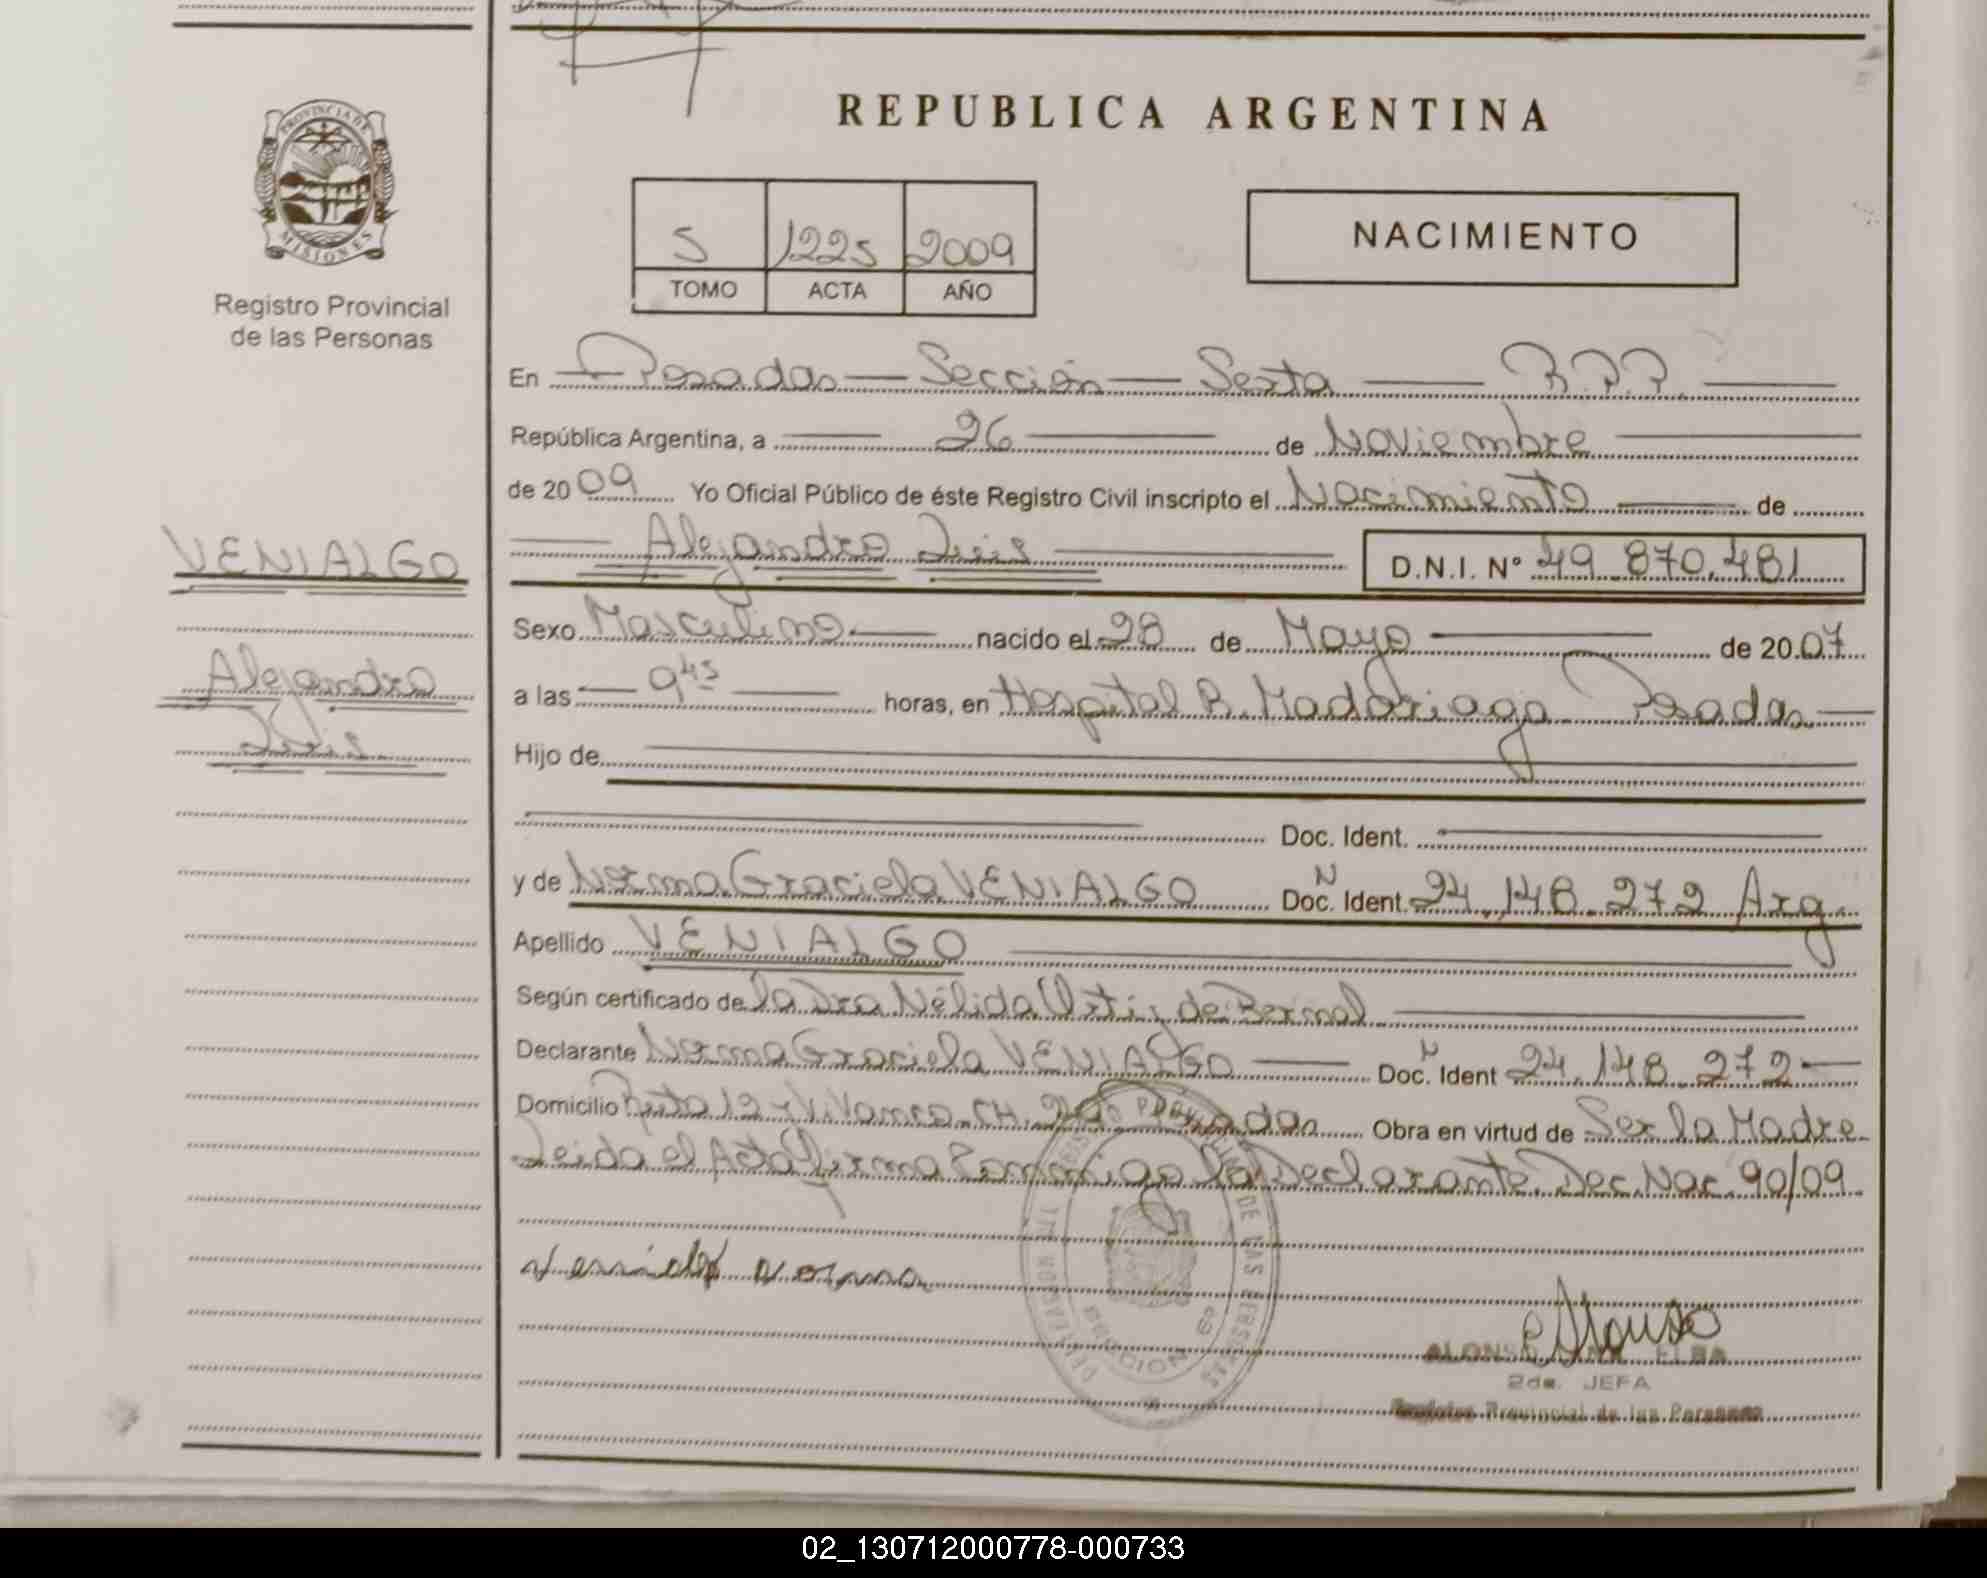 REPUBLICA ARGENTINA
PROVINCIA DE
MISIONES
Registro Provincial
de las Personas
5 1225 2009
TOMO ACTA AÑO
NACIMIENTO
En Posadas Sección Sexta R.P.P.
República Argentina, a 26 de Noviembre
de 2009 Yo Oficial Público de éste Registro Civil inscripto el Nacimiento de
VENIALGO
Alejandro Luis D.N.I. Nº 49.870.481
Sexo Masculino nacido el 28 de Mayo de 2007
Alejandro
Luis
a las 9 45 horas, en Hospital R. Madariaga Posadas
Hijo de
Doc. Ident.
y de Norma Graciela VENIALGO Doc. Ident. N 24.148.272 Arg.
Apellido VENIALGO
Según certificado de la Dra Nélida de Bernal
Declarante Norma Graciela VENIALGO Doc. Ident N 24.148.272
Domicilio Ruta 12 y CH. Posadas Obra en virtud de Ser la Madre
Leida el Acta Firma Conmigo la Declarante. Dec. Nac. 90/09
norma
SECCION 6ª
ALONSO ELBA
2da. JEFA
Registro Provincial de las Personas
02_130712000778-000733